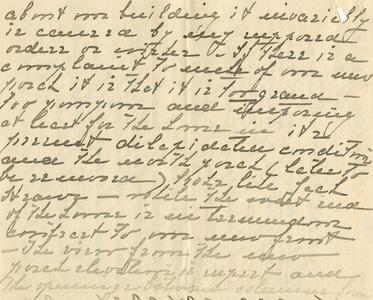 about our building it invariably
is caused by my supposed
orders or wishes - If there is a
complaint to make of our new
porch it is that it is too grand -
too pompous and imposing
at least for the house in its
present dilapidated condition
and the north porch (later to
be removed) looks like
- while the west end
of the house is in tremendous
contrast to our new front
- The view from the new
porch is superb and
the openings between columns